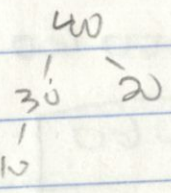 40
30 20
10